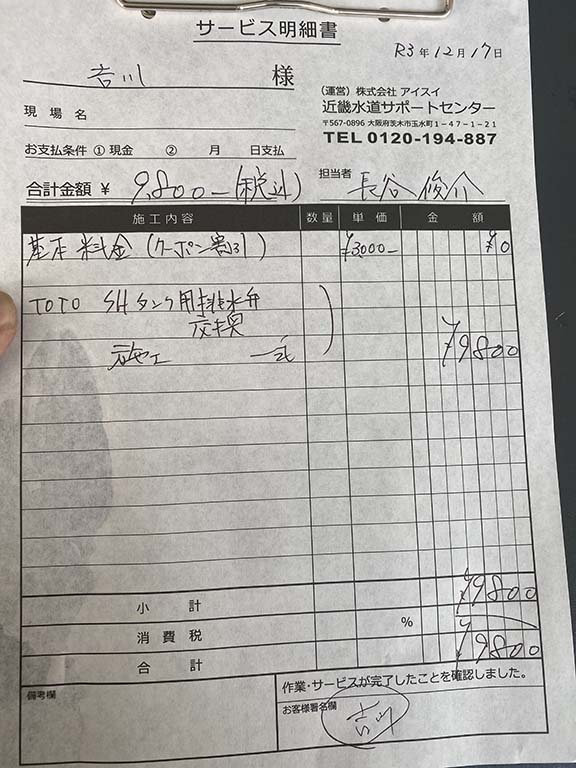 サービス明細書
R3年12月17日
吉川 様
(運営) 株式会社 アイスイ
近畿水道サポートセンター
〒567-0896 大阪府茨木市玉水町1-47-1-21
TEL 0120-194-887
現場名
お支払条件 ①現金 ② 月 日支払
担当者 長谷俊介
合計金額 ¥ 9,800-(税込)
施工内容 数量 単価 金額
基本料金(クーポン割引) ¥3000- ¥0
TOTO SHタンク用排水弁
交換
施工 一式 ¥9800
小計 ¥9800
消費税 %
合計 ¥9800
備考欄
作業・サービスが完了したことを確認しました。
お客様署名欄
吉川